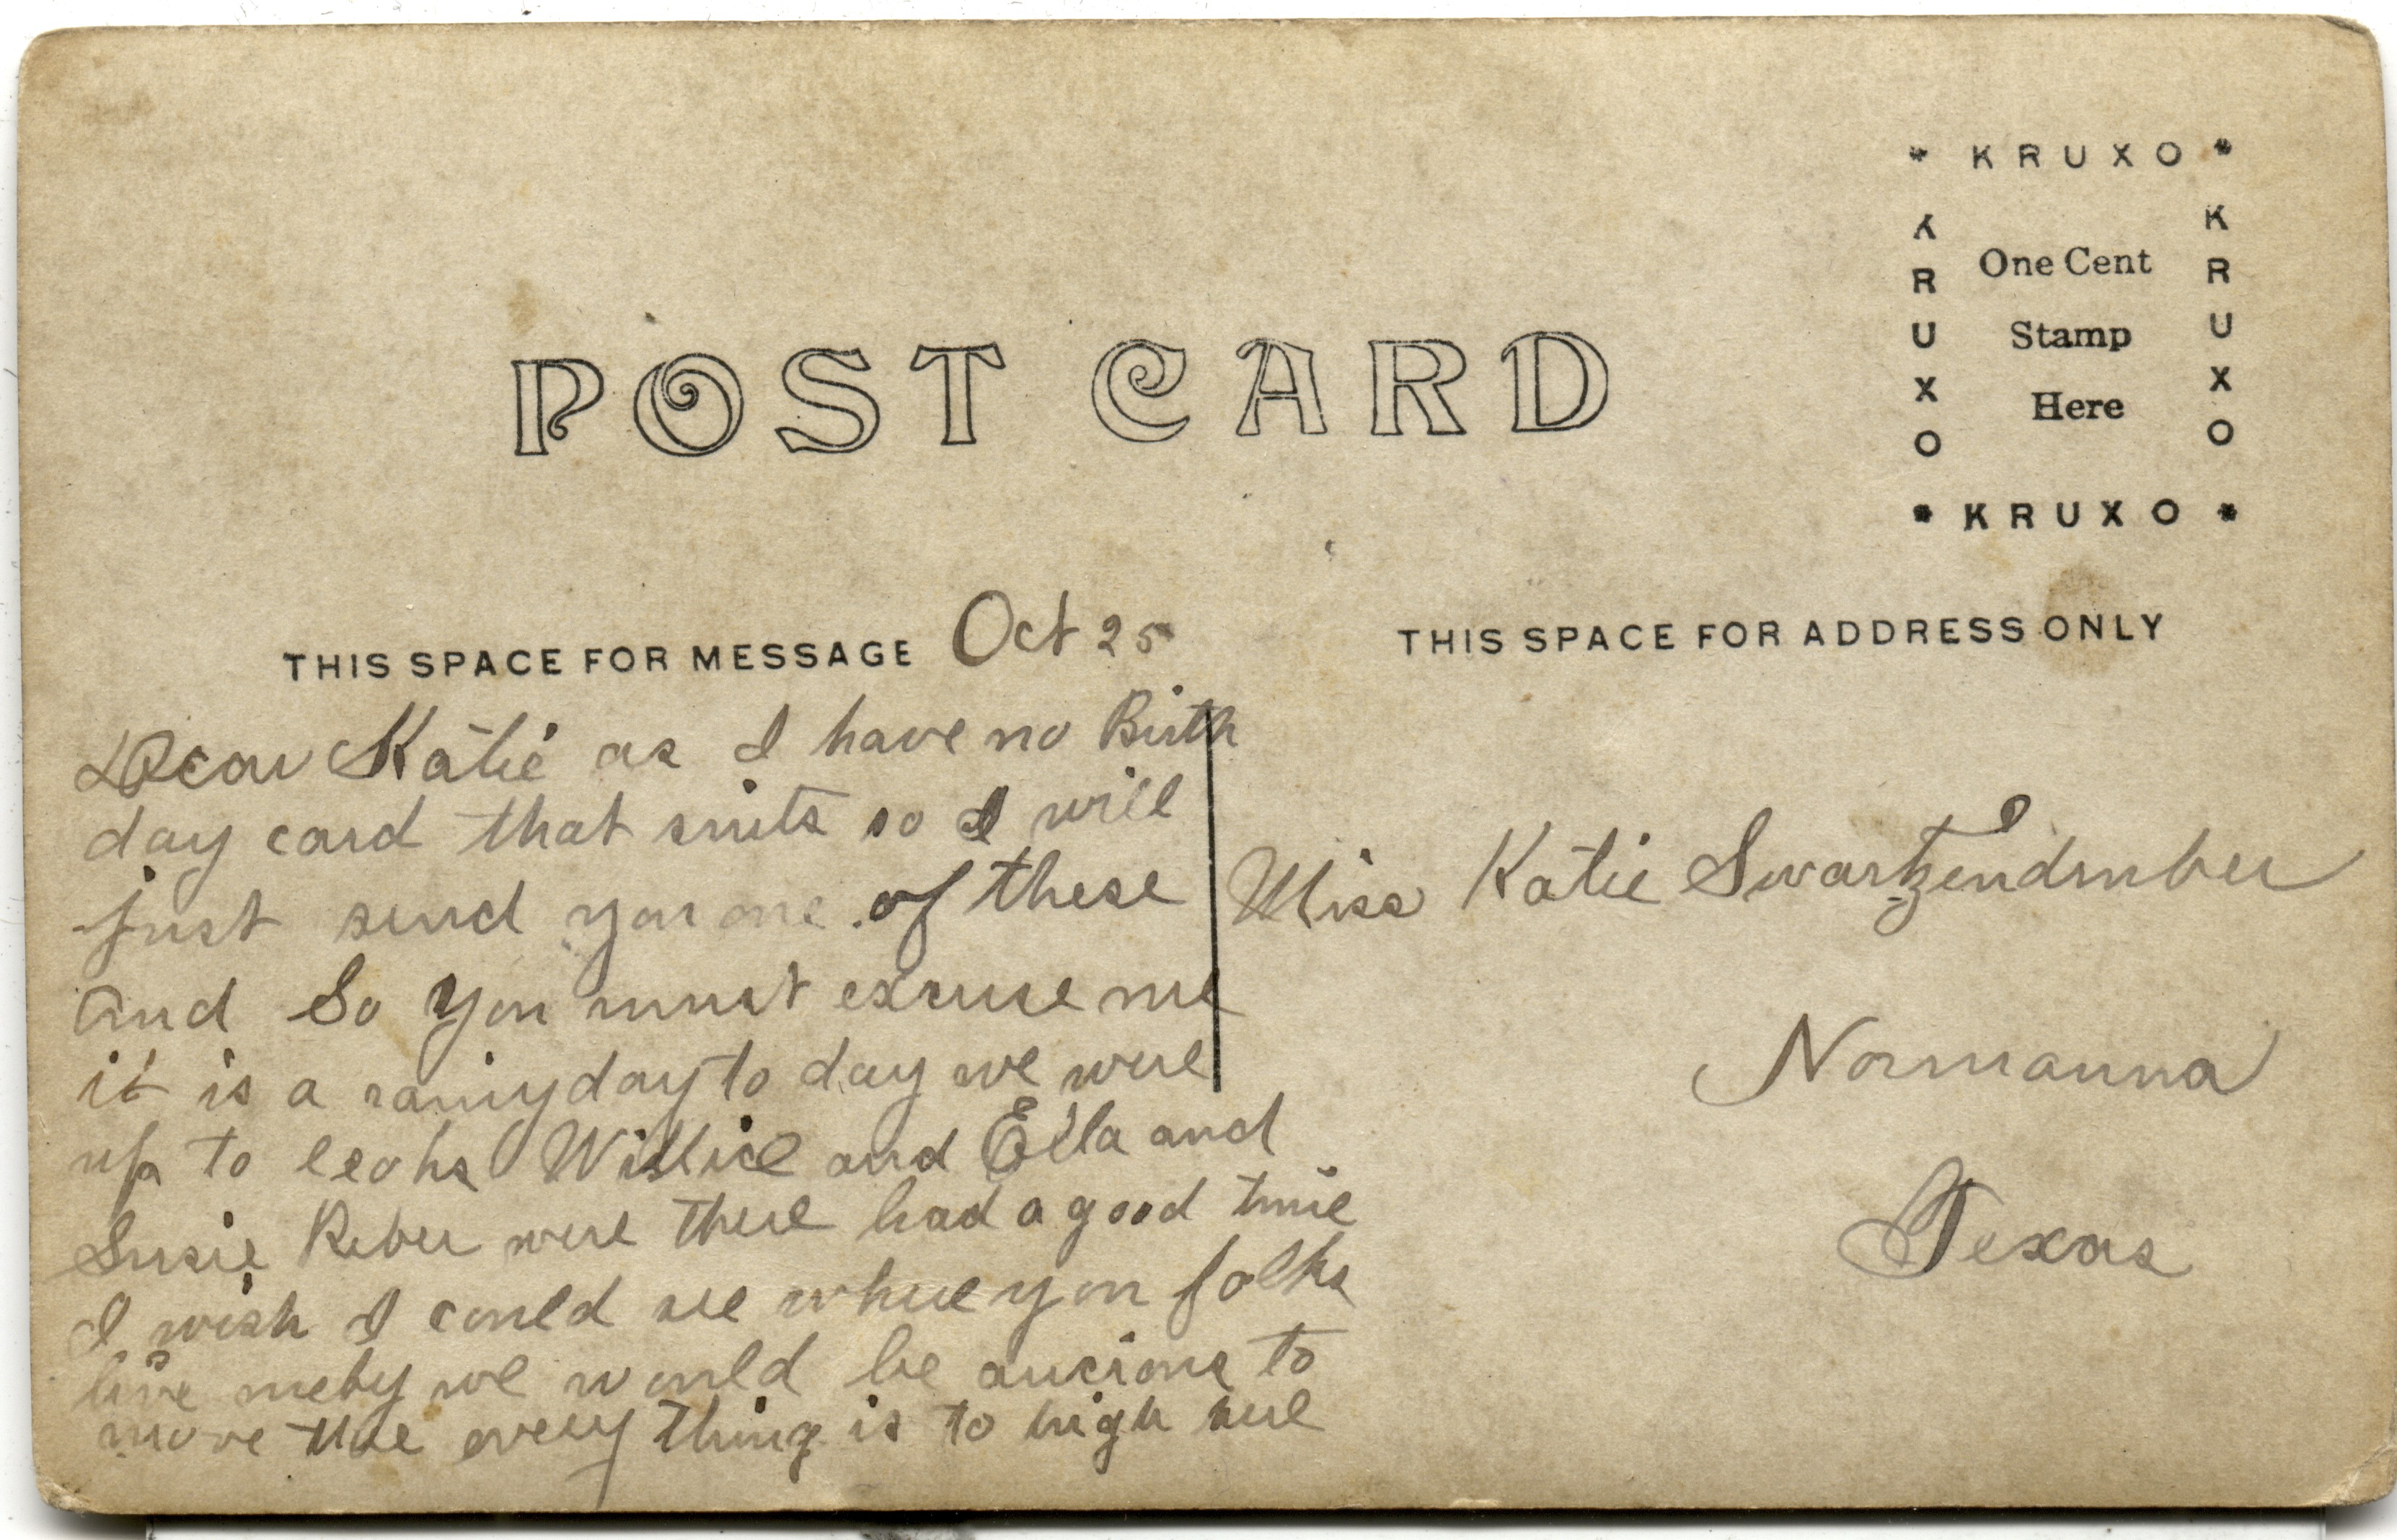 * KRUXO *
KRUXO
One Cent
Stamp
Here
KRUXO
* KRUXO *
POST CARD
THIS SPACE FOR MESSAGE Oct 25
THIS SPACE FOR ADDRESS ONLY
Dear Katie as I have no Birth
day card that suits so I will
just send you one of these
and So you must excuse me
it is a rainy day to day we were
up to leohs Willie and Ella and
Susie Reber were there had a good time
I wish I could see where you folks
live meby we would be ancious to
move thee every thing is to high here
Miss Katie Swartzendruber
Normanna
Texas